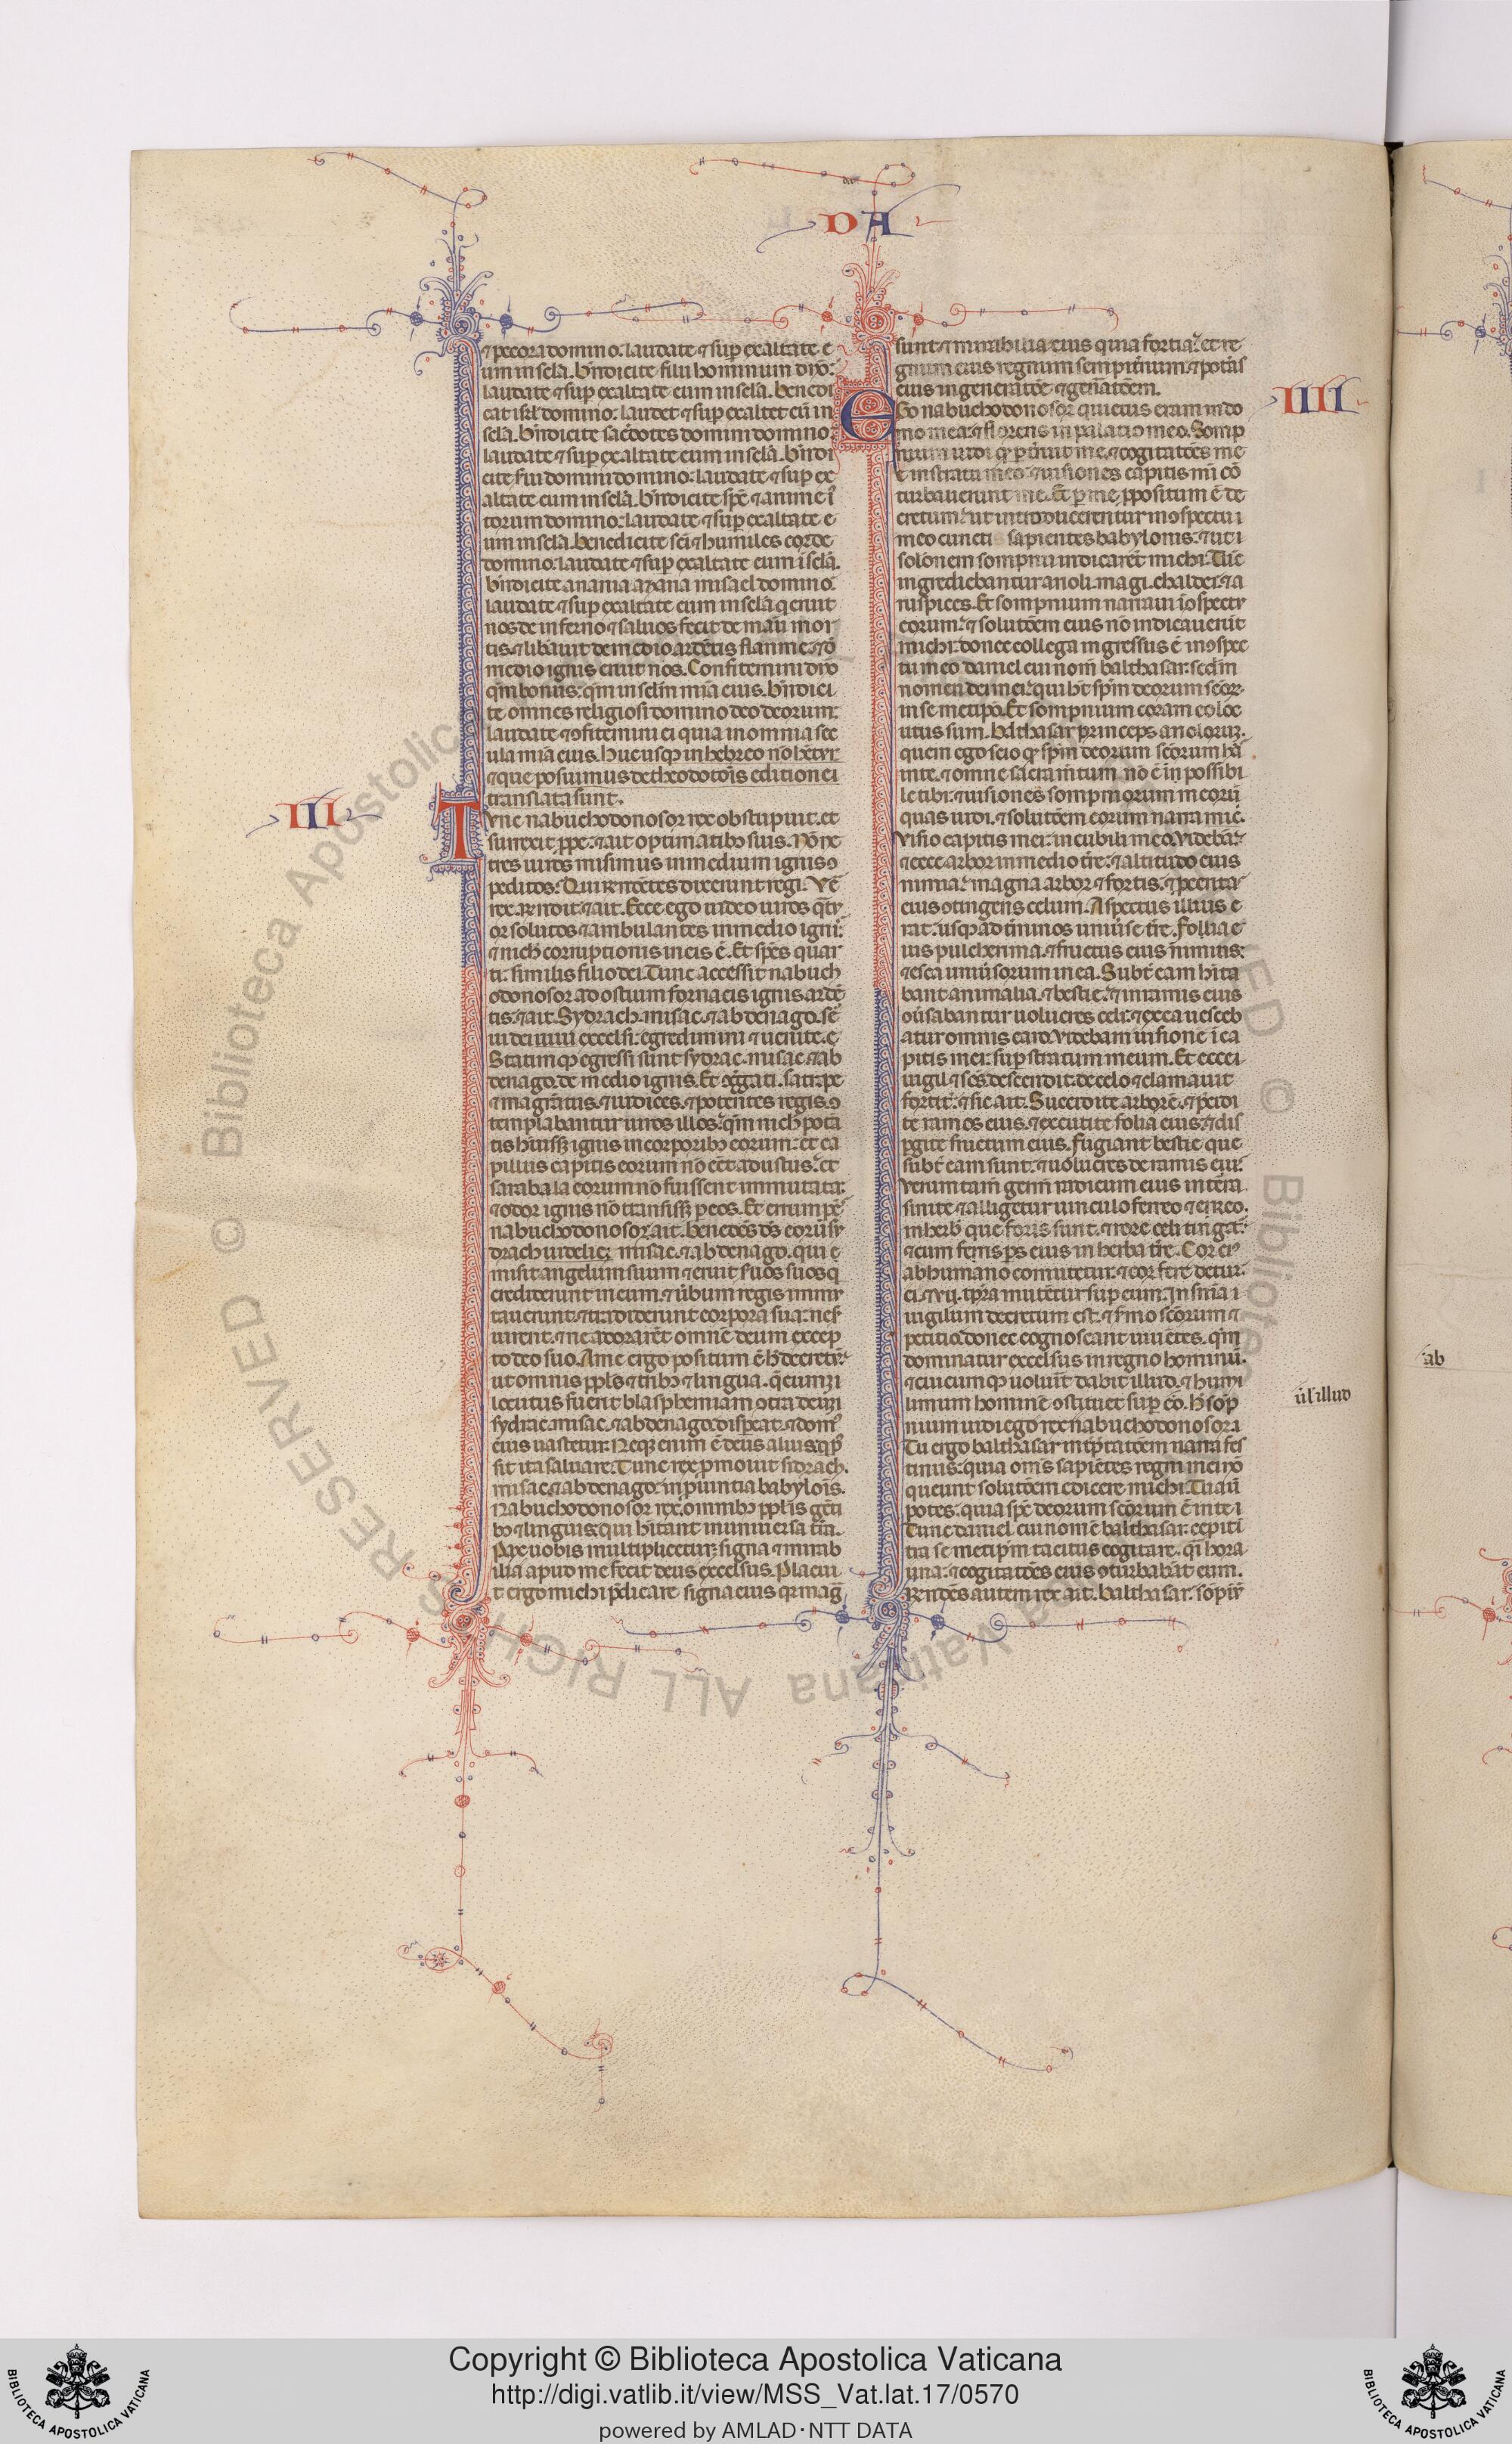 DA
⁊ pecora domino: laudate ⁊ suꝑ exaltate e
um in sc̄la. Bn̄dicite filii hominum dn̄o:
laudate ⁊ suꝑ exaltate eum in sc̄la. Benedi
cat isr̄l domino: laudet ⁊ suꝑ exaltet eū in
sc̄la. Bn̄dicite sac̄dotes domini domino:
laudate ⁊ suꝑ exaltate eum in sc̄la. Bn̄di
cite ẜui domini domino: laudate ⁊ suꝑ ex
altate eum in sc̄la. Bn̄dicite sp̄c ⁊ anime iu
torum domino: laudate ⁊ suꝑ exaltate e
um in sc̄la. Benedicite sc̄i ⁊ humiles corde
domino: laudate ⁊ suꝑ exaltate eum ī sc̄la.
Bn̄dicite anania azaria misael domino:
laudate ⁊ suꝑ exaltate eum in sc̄la q eruit
nos de inferno ⁊ saluos fecit de manu mor
tis. ⁊ lib̄auit de medio ardētis flamme. ⁊ d
medio ignis eruit nos. Confitemini dn̄o
qm̄ bonus: qm̄ in sc̄lm mīa eius. Bn̄dici
te omnes religiosi domino deo deorum:
laudate ⁊ ꝯfitemini ei quia in omnia sec
ula mīa eius. Hucusqꝫ in hebreo nō hētur
⁊ que posuimus de theodotiōis editione
translata sunt.
III
Tvnc nabuchodonosor rex obstupuit. et
surrexit ꝓpe: ⁊ ait optimatibꝫ suis. Nōne
tres uiros misimus in medium ignis ꝯ
peditos. Qui rn̄dētes dixerunt regi. Ve
rex. Rn̄dit. ⁊ ait. Ecce ego uideo uiros q̄tu
or solutos ⁊ ambulantes in medio ignis
⁊ nich̄ corruptionis in eis ē. Et spēs quar
ti: similis filio dei. Tunc accessit nabuch
odonosor ad ostium fornacis ignis ardē
tis. ⁊ ait. Sydrach. misac. ⁊ abdenago. ẜ
ui dei uiui excelsi: egredimini ⁊ uenite. e
Statimqꝫ egressi sunt sydrac. misac. ⁊ ab
denago. de medio ignis. Et ꝯgͤgati. satrape
⁊ magr̄atus. ⁊ iudices. ⁊ potentes regis. ꝯ
templabantur uiros illos: qm̄ nich̄ pota
tis h̄uissꝫ ignis in corporibꝫ eorum: et ca
pillus capitis eorum nō eēt adustus: et
sarabala eorum nō fuissent immutata:
⁊ odor ignis nō transissꝫ ꝑ eos. Et erumpēs
nabuchodonosor. ait. Benedcs ds̄ eorū sy
drach uidelicꝫ. misac. ⁊ abdenago. qui e
misit angelum suum ⁊ eruit suos suos q
crediderunt in eum. ⁊ ūbum regis immu
tauerunt. ⁊ tradiderunt corpora sua: ne ẜ
uirent. ⁊ ne adorarēt omnē deum excep
to deo suo. A me ergo positum ē h̄ decretū
ut omnis ppl̄s ⁊ tribꝫ ⁊ lingua. q̄cumqꝫ
locutus fuerit blasphemiam ꝯtra deum
sydrac. misac. ⁊ abdenago. disꝑeat. ⁊ domꝰ
eius uastetur. Neqꝫ enim ē deus alius: q̄ p̄
sit ita saluare. Tunc rex ꝓmouit sidrach.
misac. ⁊ abdenago: in ꝓuintia babylois.
Nabuchodonosor rex: omnibꝫ ppl̄is gēti
bꝫ ⁊ linguis: qui hītant in uniuersa t̄ra.
Pax uobis multiplicetur: signa ⁊ mirab
ilia apud me fecit deus excelsus. Placui
t ergo michi p̄dicare signa eius qr magᵃ
sunt: ⁊ mirabilia eius quia fortia: et re
gnum eius regnum sempit̄num: ⁊ potās
eius in generatōe ⁊ gen̄atōem.
IIII
Ego nabuchodonosor quietus eram in do
mo mea: ⁊ florens in palatio meo. Somp
nium uidi qd̄ ꝑt̄ruit me. ⁊ cogitatōes me
e in stratu meo. ⁊ uisiones capitis mī cō
turbauerunt me. Et ꝑ me ꝓpositum ē de
cretum: ut introducerentur in ꝯspectu
meo cuncti sapientes babylonis: ⁊ ut
solōnem sompnii indicarēt michi. Tūc
ingrediebantur arioli. magi. chaldei. ⁊ a
ruspices. Et sompnium narraui ī ꝯspectu
eorum: ⁊ solutōem eius nō indicauerūt
michi: donec collega ingressus ē in ꝯspec
tu meo daniel cui nom̄ balthasar: scd̄m
nomen dei mei: qui h̄t sp̄m deorum scōꝝ
in semetip̄o. Et sompnium coram eo loc
utus sum. Balthasar princeps arioloruꝫ.
quem ego scio qd̄ sp̄m deorum scōrum hā
in te. ⁊ omne sacram̄tum nō ē in possibi
le tibi: ⁊ uisiones sompniorum meorū
quas uidi. ⁊ solutōem eorum narra mic̄.
Visio capitis mei: in cubili meo. Videbā:
⁊ ecce arbor in medio t̄re: ⁊ altitudo eius
nimia: magna arbor ⁊ fortis: ⁊ pcerita
eius ꝯtingens celum. Aspectus illius e
rat: usqꝫ ad t̄minos uniūse t̄re. Follia e
ius pulcherrima. ⁊ fructus eius nimius:
⁊ esca uniūsorum in ea. Subt̄ eam hīta
bant animalia. ⁊ bestie: ⁊ in ramis eius
ꝯūsabantur uolucres celi: ⁊ ex ea uesceb
atur omnis caro. Videbam in uisione ca
pitis mei: suꝑ stratum meum. Et ecce
uigil ⁊ scs̄ descendit. de celo ⁊ clamauit
fortit̄: ⁊ sic ait. Succidite arborē. ⁊ p̄cidi
te ramos eius. ⁊ excutite folia eius: ⁊ dis
ꝑgite fructum eius. Fugiant bestie que
subt̄ eam sunt: ⁊ uolucres de ramis eiꝰ.
Verumtam̄ germ̄ radicum eius in t̄ra
sinite ⁊ alligetur uinculo ferreo ⁊ ereo.
in herb̄ que foris sunt. ⁊ rore celi tingat̄:
⁊ cum feris ps̄ eius in herba t̄re. Cor eiꝰ
ab humano comutetur: ⁊ cor fere detur
ei. ⁊ vij. tp̄ra mutētur suꝑ eum. In sn̄ia
uigilum decretum est. ⁊ ẜmo scōrum ⁊
petitio. donec cognoscant uiuētes. qm̄
dominatur excelsus in regno hominū.
⁊ cuicumqꝫ uoluīt dabit illud. ⁊ humi
limum hominē ꝯstituet suꝑ eo. H̄ sōp
nium uidi ego rex nabuchodonosor.
ūl illud
Tu ergo balthasar int̄p̄tatōem narra fes
tinus: quia om̄s sapiētes regni mei nō
queunt solutōem edicere michi. Tu aū
potes. quia sp̄c deorum scōrum ē in te.
Tunc daniel cui nomē balthasar. cepit ī
tra semetip̄m tacitus cogitare. q̄i hora
una: ⁊ cogitatōes eius ꝯturbabāt eum.
Rn̄dēs autem rex ait. balthasar: sōpnī
ab
© Biblioteca Apostolica Vaticana ALL RIGHTS RESERVED
Copyright © Biblioteca Apostolica Vaticana
http://digi.vatlib.it/view/MSS_Vat.lat.17/0570
powered by AMLAD·NTT DATA
BIBLIOTECA APOSTOLICA VATICANA
BIBLIOTECA APOSTOLICA VATICANA